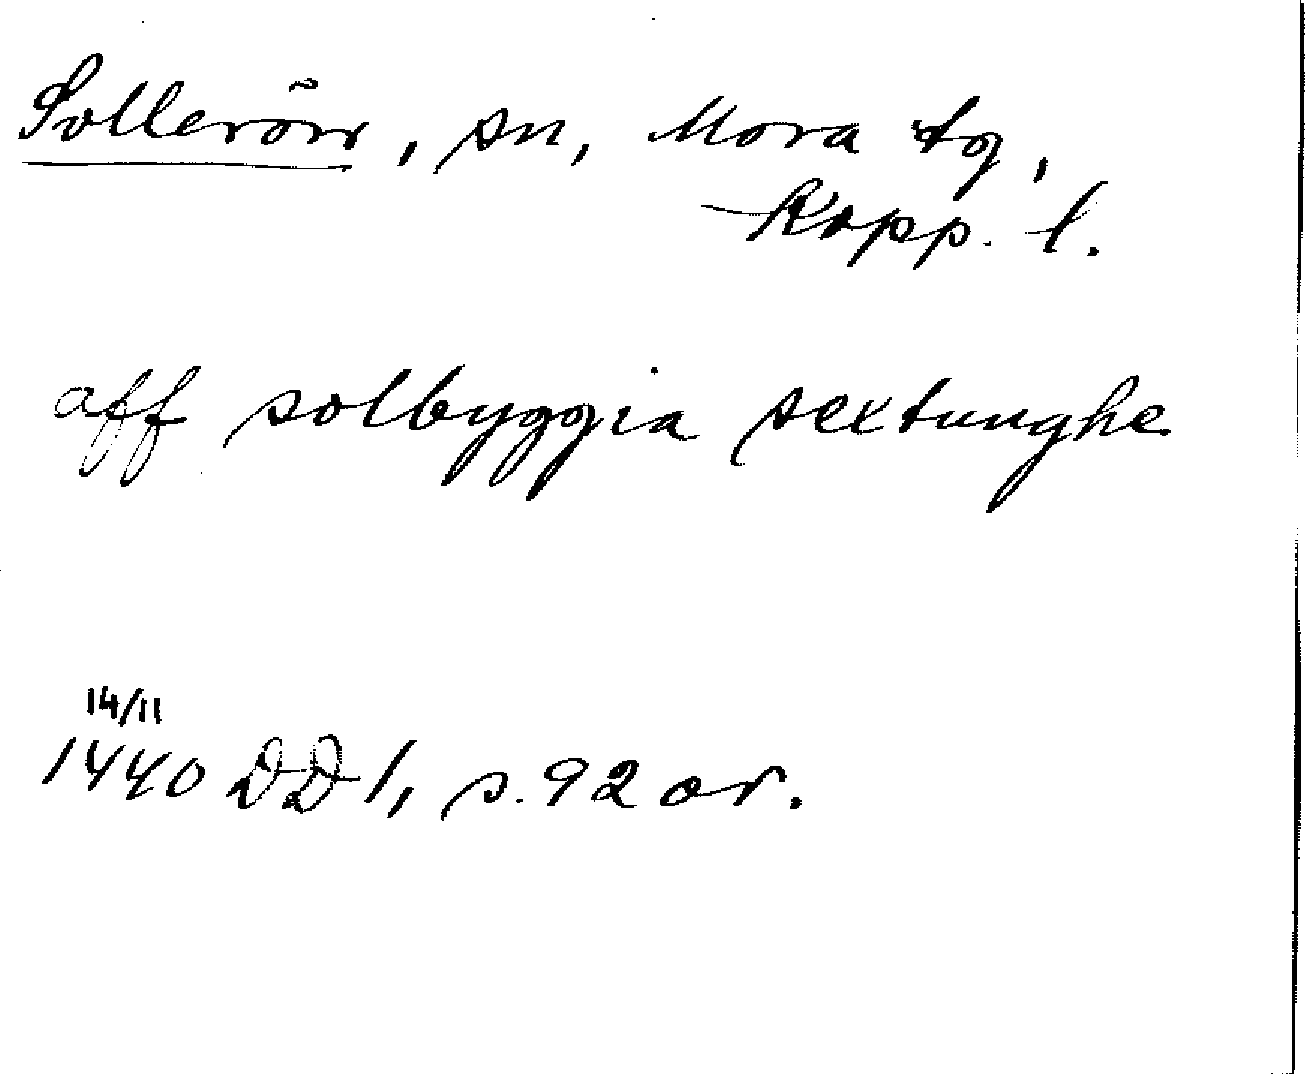 Sollerön, sn, Mora tg,
Kopp. l.
aff solbyggia sextunghe
14/11
1440 DD 1, s. 92 or.